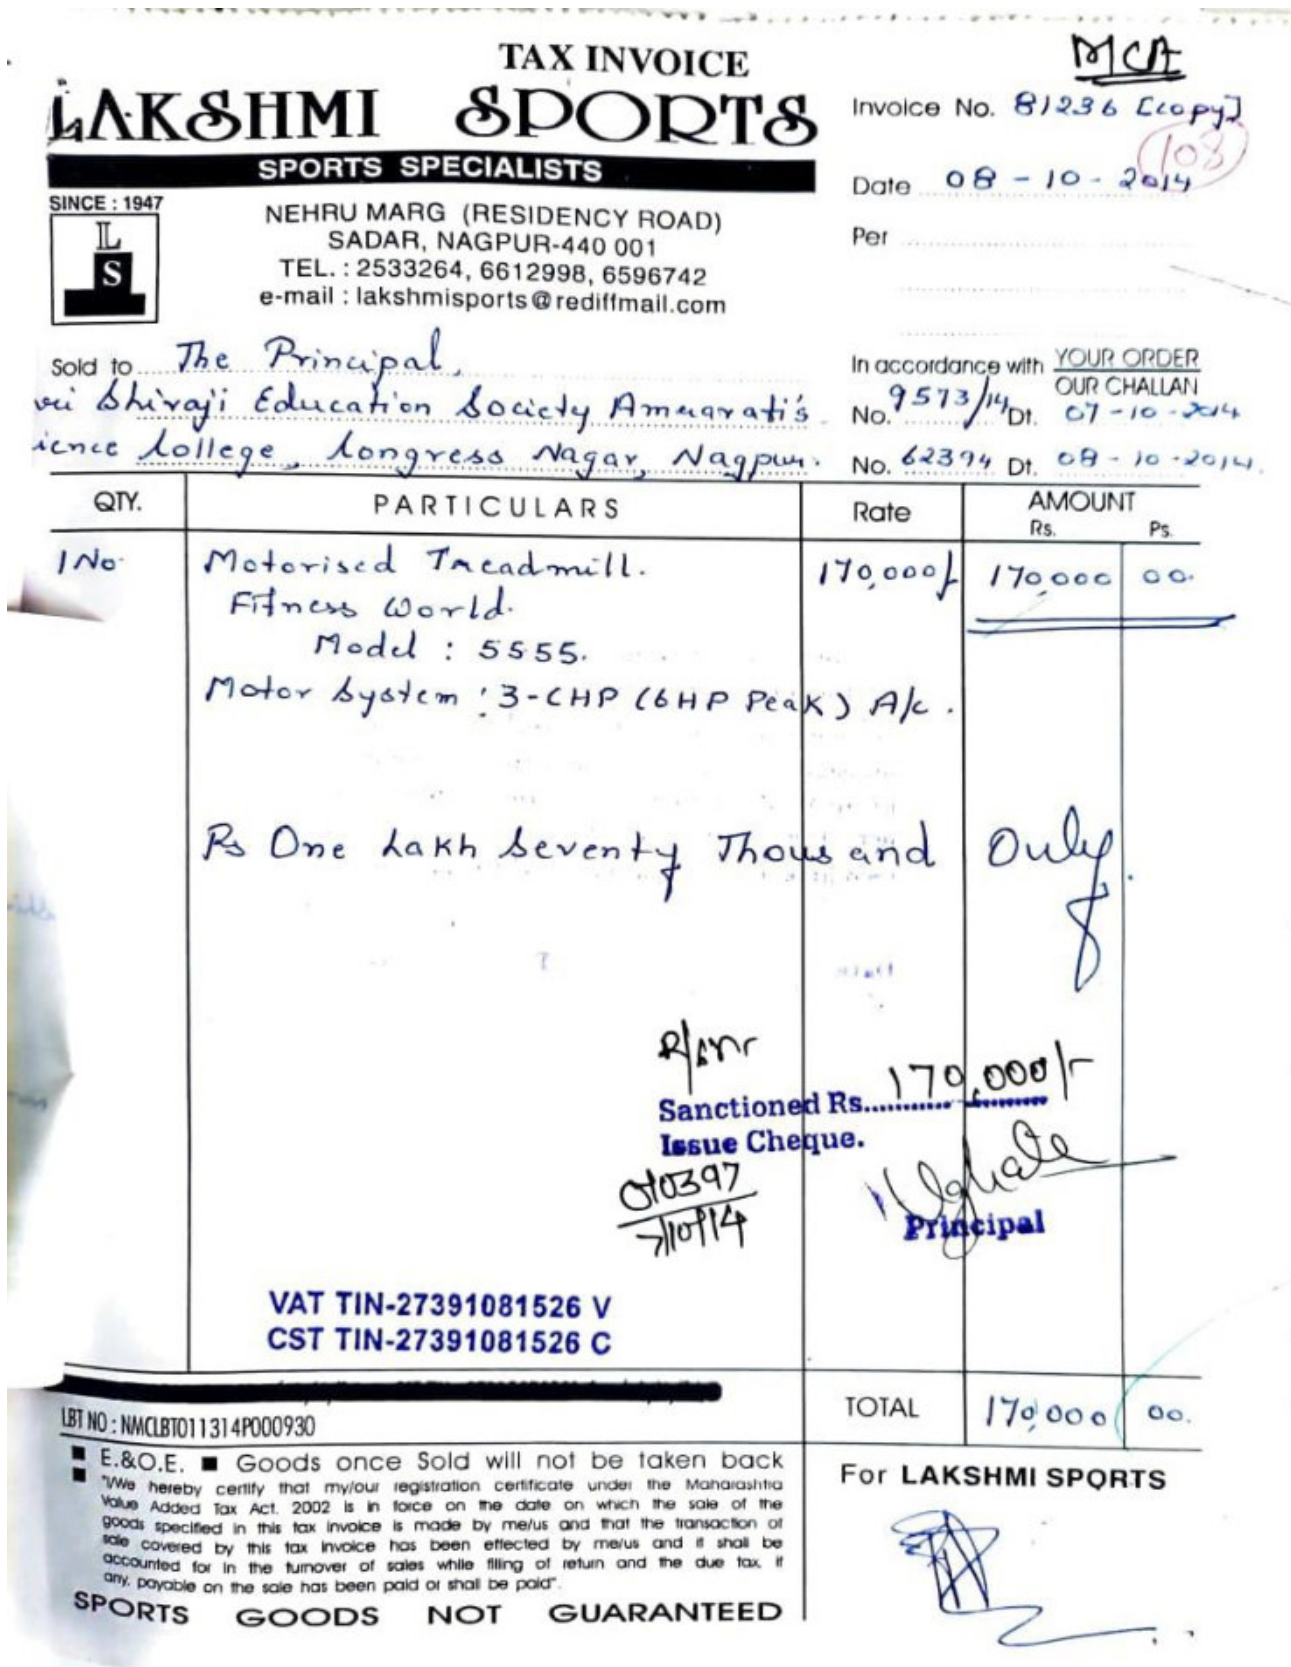 MCA
TAX INVOICE
LAKSHMI SPORTS
SPORTS SPECIALISTS
Invoice No. 81236 [copy]
108
Date 08-10-2014
Per
SINCE : 1947
L
S
NEHRU MARG (RESIDENCY ROAD)
SADAR, NAGPUR-440 001
TEL. : 2533264, 6612998, 6596742
e-mail : lakshmisports@rediffmail.com
Sold to The Principal,
Shivaji Education Society Amaravati's
ience College, Congress Nagar, Nagpur.
In accordance with YOUR ORDER
OUR CHALLAN
No. 9573/14 Dt. 07-10-2014
No. 62394 Dt. 08-10-2014.
QTY. PARTICULARS Rate AMOUNT
Rs. Ps.
1 No. Motorised Treadmill. 170,000/- 170,000 00.
Fitness World.
Model : 5555.
Motor System : 3-CHP (6HP Peak) A/c.
Rs One Lakh Seventy Thousand Only.
Sanctioned Rs. 170,000/-
Issue Cheque.
010397
7/10/14
Principal
VAT TIN-27391081526 V
CST TIN-27391081526 C
TOTAL 170,000 00.
LBT NO : NMCLBT011314P000930
■ E.&O.E. ■ Goods once Sold will not be taken back
■ "I/We hereby certify that my/our registration certificate under the Maharashtra
Value Added Tax Act. 2002 is in force on the date on which the sale of the
goods specified in this tax invoice is made by me/us and that the transaction of
sale covered by this tax invoice has been effected by me/us and it shall be
accounted for in the turnover of sales while filing of return and the due tax, if
any, payable on the sale has been paid or shall be paid".
SPORTS GOODS NOT GUARANTEED
For LAKSHMI SPORTS